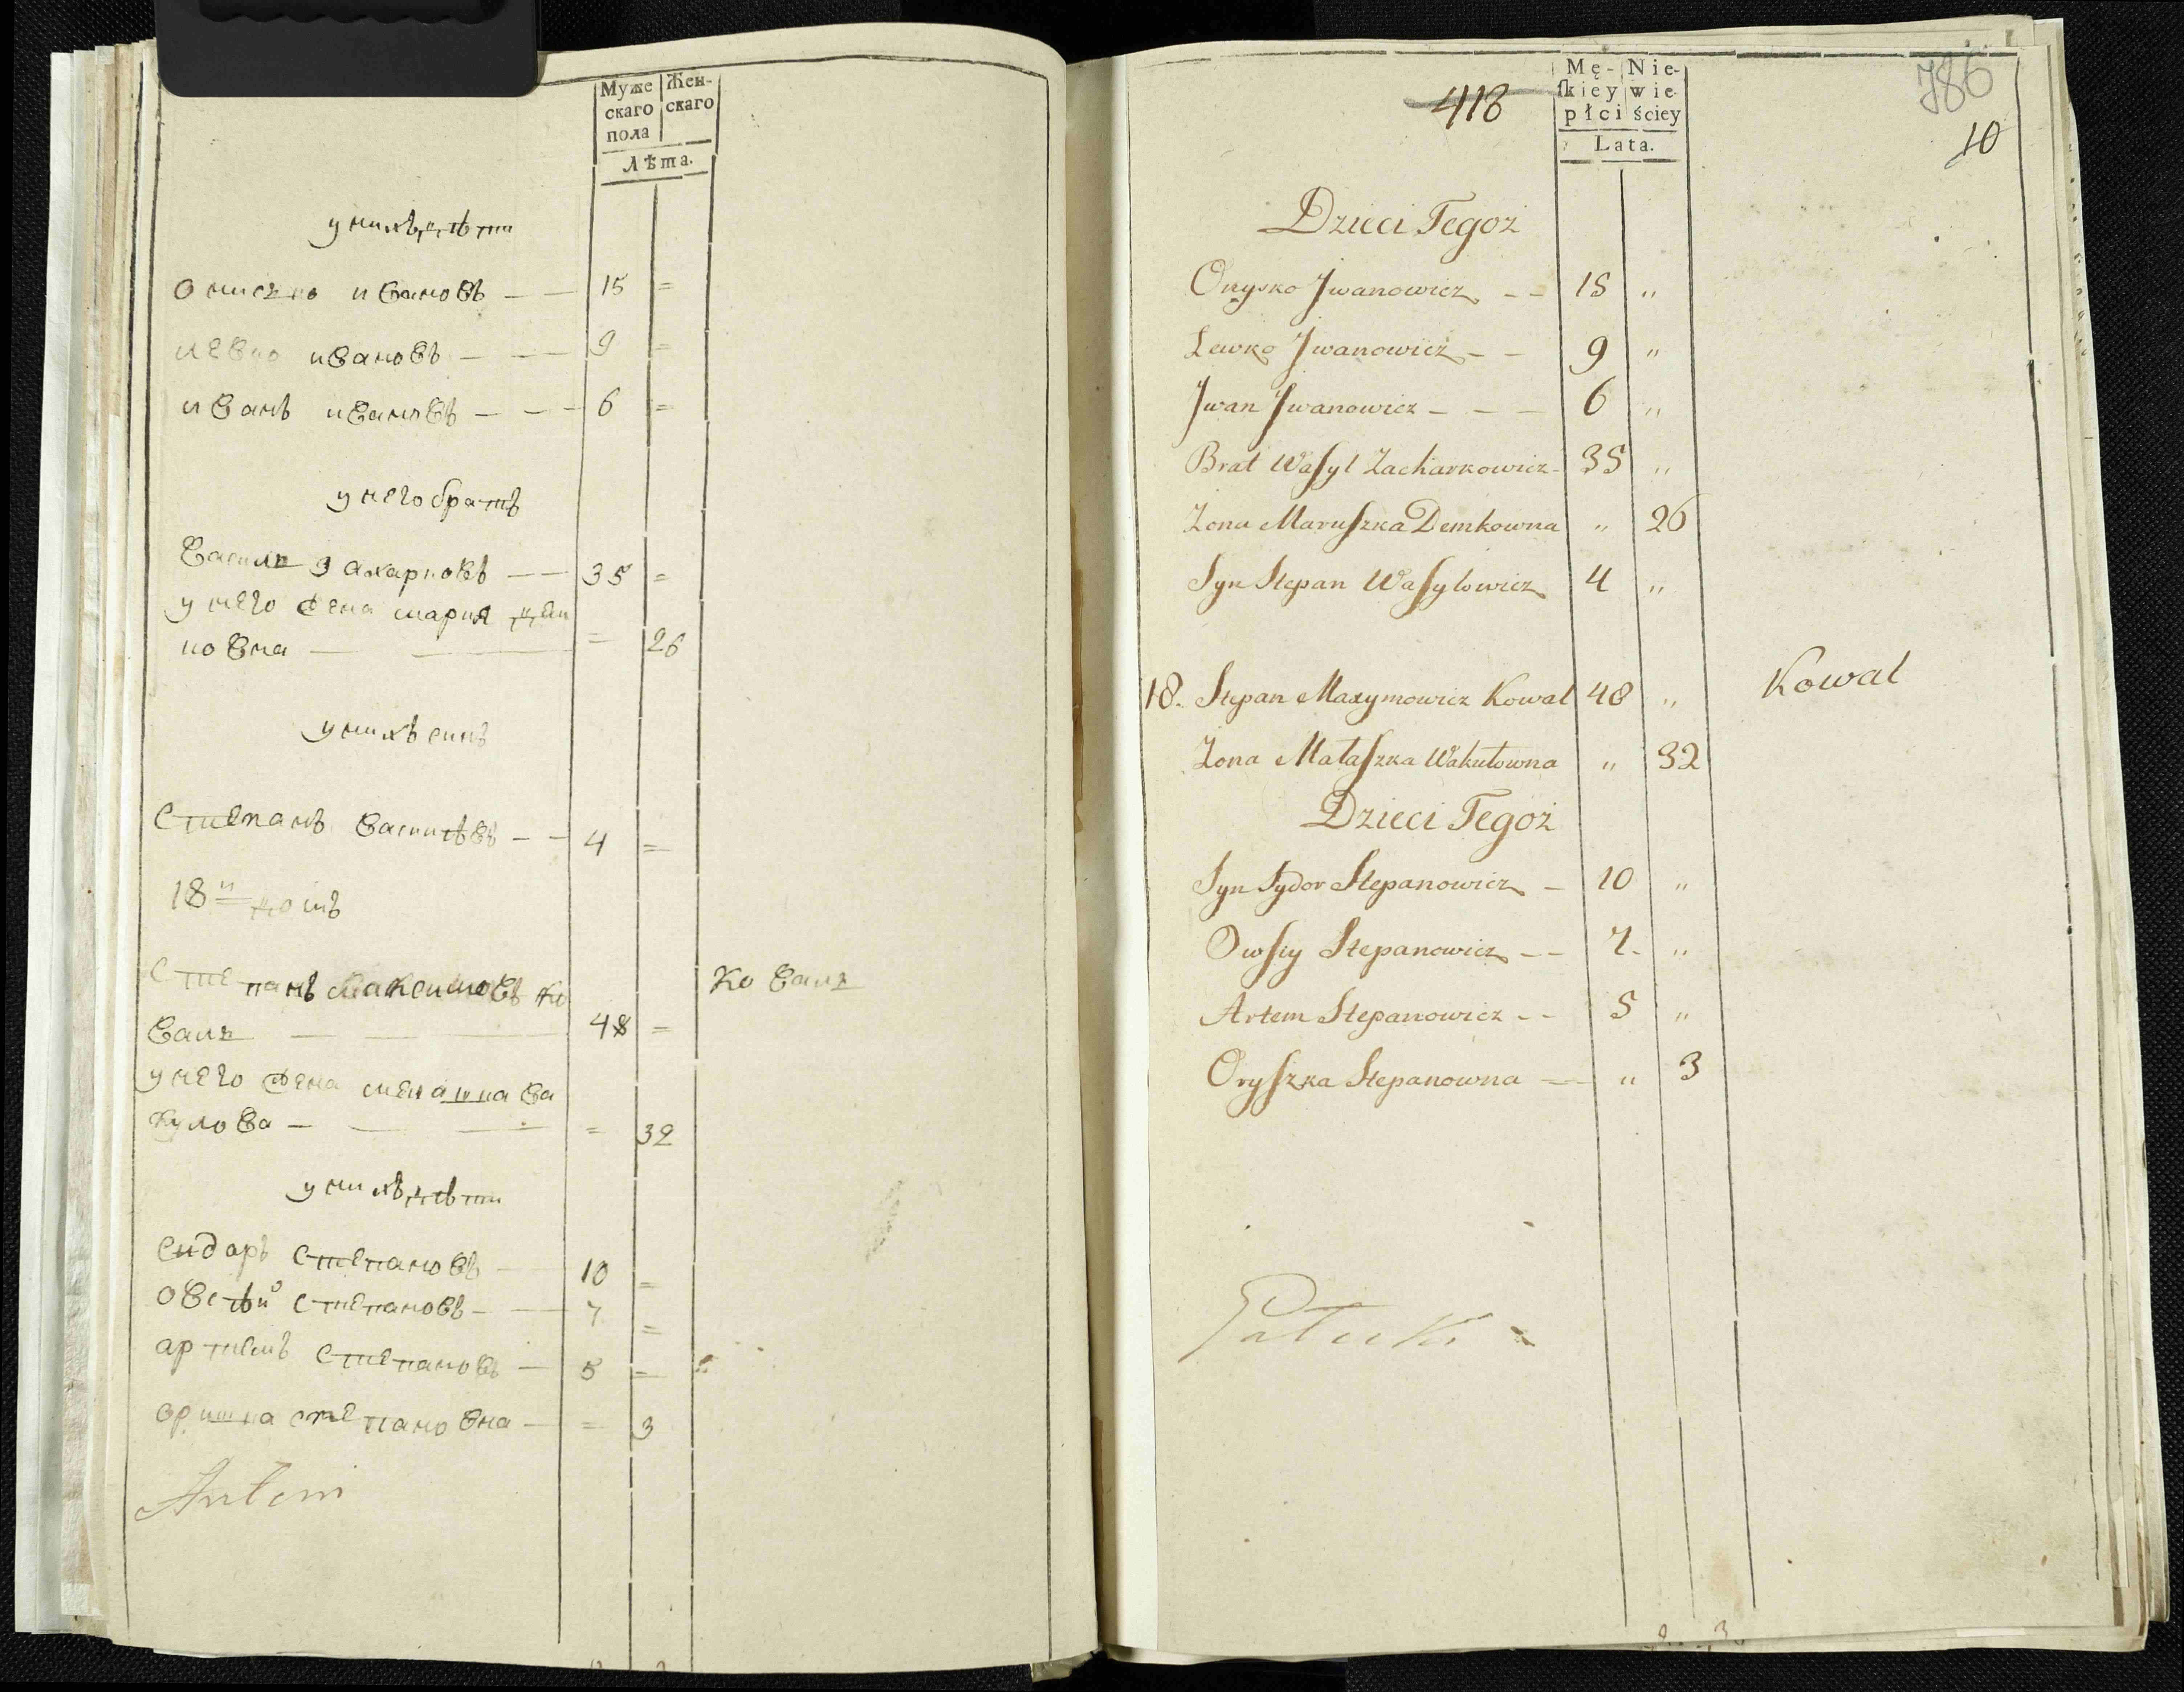 Муже
скаго
пола
Жен-
скаго
Лѣта.
у нихъ дѣти
Онисько ивановъ — — 15 =
левко ивановъ — — — 9 =
иванъ ивановъ — — — 6 =
у него братъ
василь захарковъ — — 35 =
у него жена мария дем
ковна — — = 26
у нихъ синъ
степанъ василѣвъ — — 4 =
18й домъ
степанъ максимовъ ко
валь — — — 48 = коваль
у него жена мелашка ва
кулова — — — = 32
у нихъ дѣти
сидаръ степановъ — 10 =
овсѣй степановъ — — 7 =
артемъ степановъ — 5 =
оришка степановна — = 3
Antoni
418
Mę-
skiey
płci
Nie-
wie-
ściey
Lata.
786
10
Dzieci Tegoż
Onysko Jwanowicz — — 15 "
Lewko Jwanowicz — — 9 "
Jwan Jwanowicz — — — 6 "
Brat Wasyl Zacharkowicz — 35 "
Żona Maruszka Demkowna " 26
Syn Stepan Wasylowicz 4 "
18. Stepan Maxymowicz Kowal 48 " Kowal
Żona Małaszka Wakułowna " 32
Dzieci Tegoż
Syn Sydor Stepanowicz — 10 "
Owsiy Stepanowicz — — 7 "
Artem Stepanowicz — — 5 "
Oryszka Stepanowna — " 3